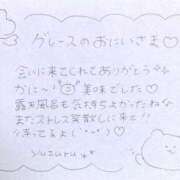 グレースのおにいさま♡
会いに来てくれてありがとう
かに〜 美味でした♡
露天風呂も気持ちよかったねな
またストレス発散しに来て!!
待ってるよ(˙˘˙)♡
yuzuru